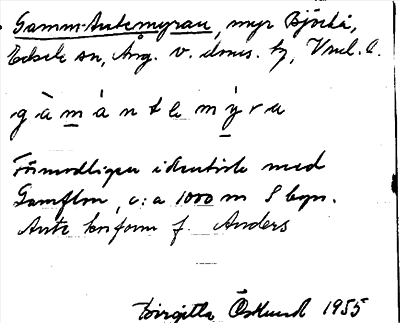 Gamm-Antemyran, myr Björkå,
Edsele sn, Ång. v. doms. h, Vnrl. l.
g à m à n t e m ỳ r a
Förmodligen identisk med
Gamflon, c:a 1000 m S byn.
Ante kortform f. Anders
Birgitta Östlund 1955